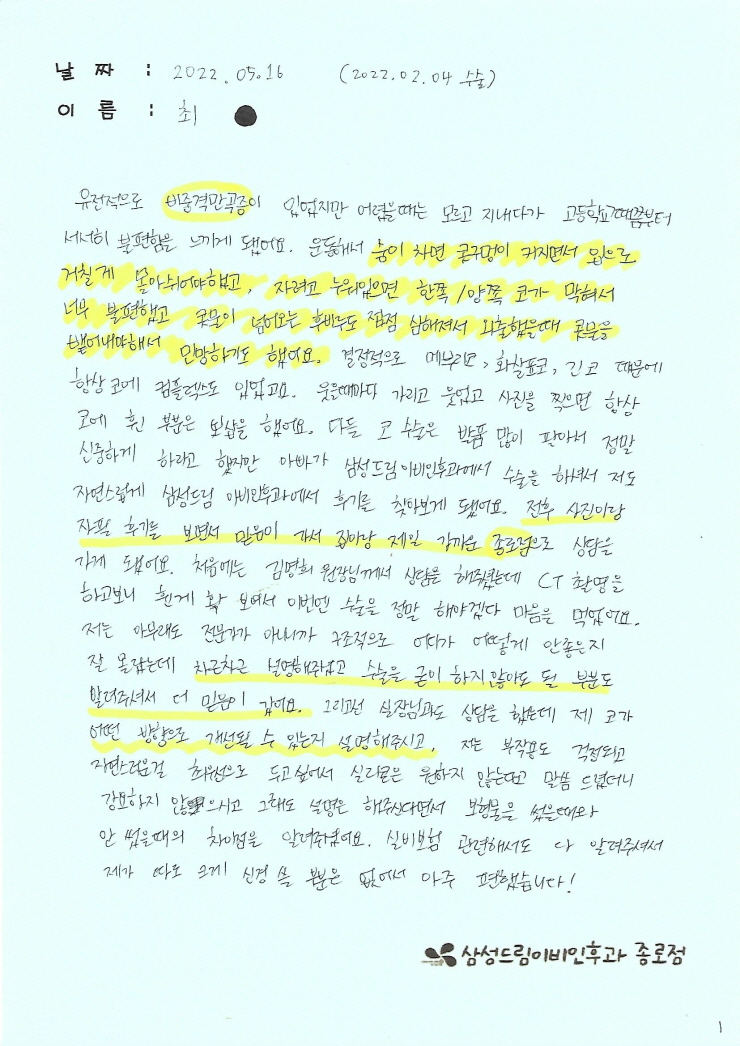 날 짜 : 2022.05.16 (2022.02.04 수술)
이 름 : 최
유전적으로 비중격만곡증이 있었지만 어렸을때는 모르고 지내다가 고등학교때쯤부터
서서히 불편함을 느끼게 됐어요. 운동해서 숨이 차면 콧구멍이 커지면서 입으로
거칠게 몰아쉬어야했고, 자려고 누워있으면 한쪽/양쪽 코가 막혀서
너무 불편했고 콧물이 넘어오는 후비루도 점점 심해져서 외출했을때 콧물을
뱉어내야해서 민망하기도 했어요. 결정적으로 메부리코, 화살표코, 긴 코 때문에
항상 코에 컴플렉스도 있었고요. 웃을때마다 가리고 웃었고 사진을 찍으면 항상
코에 휜 부분은 뽀샵을 했어요. 다들 코 수술은 발품 많이 팔아서 정말
신중하게 하라고 했지만 아빠가 삼성드림이비인후과에서 수술을 하셔서 저도
자연스럽게 삼성드림 이비인후과에서 후기를 찾아보게 됐어요. 전후 사진이랑
자필 후기를 보면서 믿음이 가서 집이랑 제일 가까운 종로점으로 상담을
가게 됐어요. 처음에는 김명희 원장님께서 상담을 해주셨는데 CT 촬영을
하고보니 휜게 확 보여서 이번엔 수술을 정말 해야겠다 마음을 먹었어요.
저는 아무래도 전문가가 아니니까 구조적으로 어디가 어떻게 안좋은지
잘 몰랐는데 차근차근 설명해주셨고 수술을 굳이 하지않아도 될 부분도
알려주셔서 더 믿음이 갔어요. 그리고선 실장님과도 상담을 했는데 제 코가
어떤 방향으로 개선될 수 있는지 설명해주시고, 저는 부작용도 걱정되고
자연스러운걸 최우선으로 두고싶어서 실리콘은 원하지 않는다고 말씀 드렸더니
강요하지 않으시고 그래도 설명은 해주신다면서 보형물을 썼을때와
안 썼을때의 차이점을 알려주셨어요. 실비보험 관련해서도 다 알려주셔서
제가 따로 크게 신경 쓸 부분은 없어서 아주 편했습니다!
삼성드림이비인후과 종로점
1